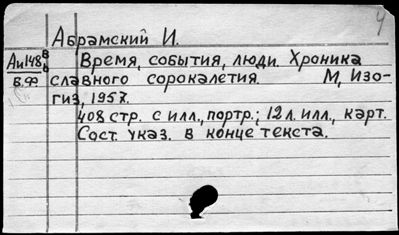 Абрамский И.
Аи148 В Ь
Б.Ф
Время, события, люди. Хроника
славного сорокалетия. М, Изо-
гиз, 1957.
408 стр. с илл., портр.; 12 л. илл., карт.
Сост. указ. в конце текста.